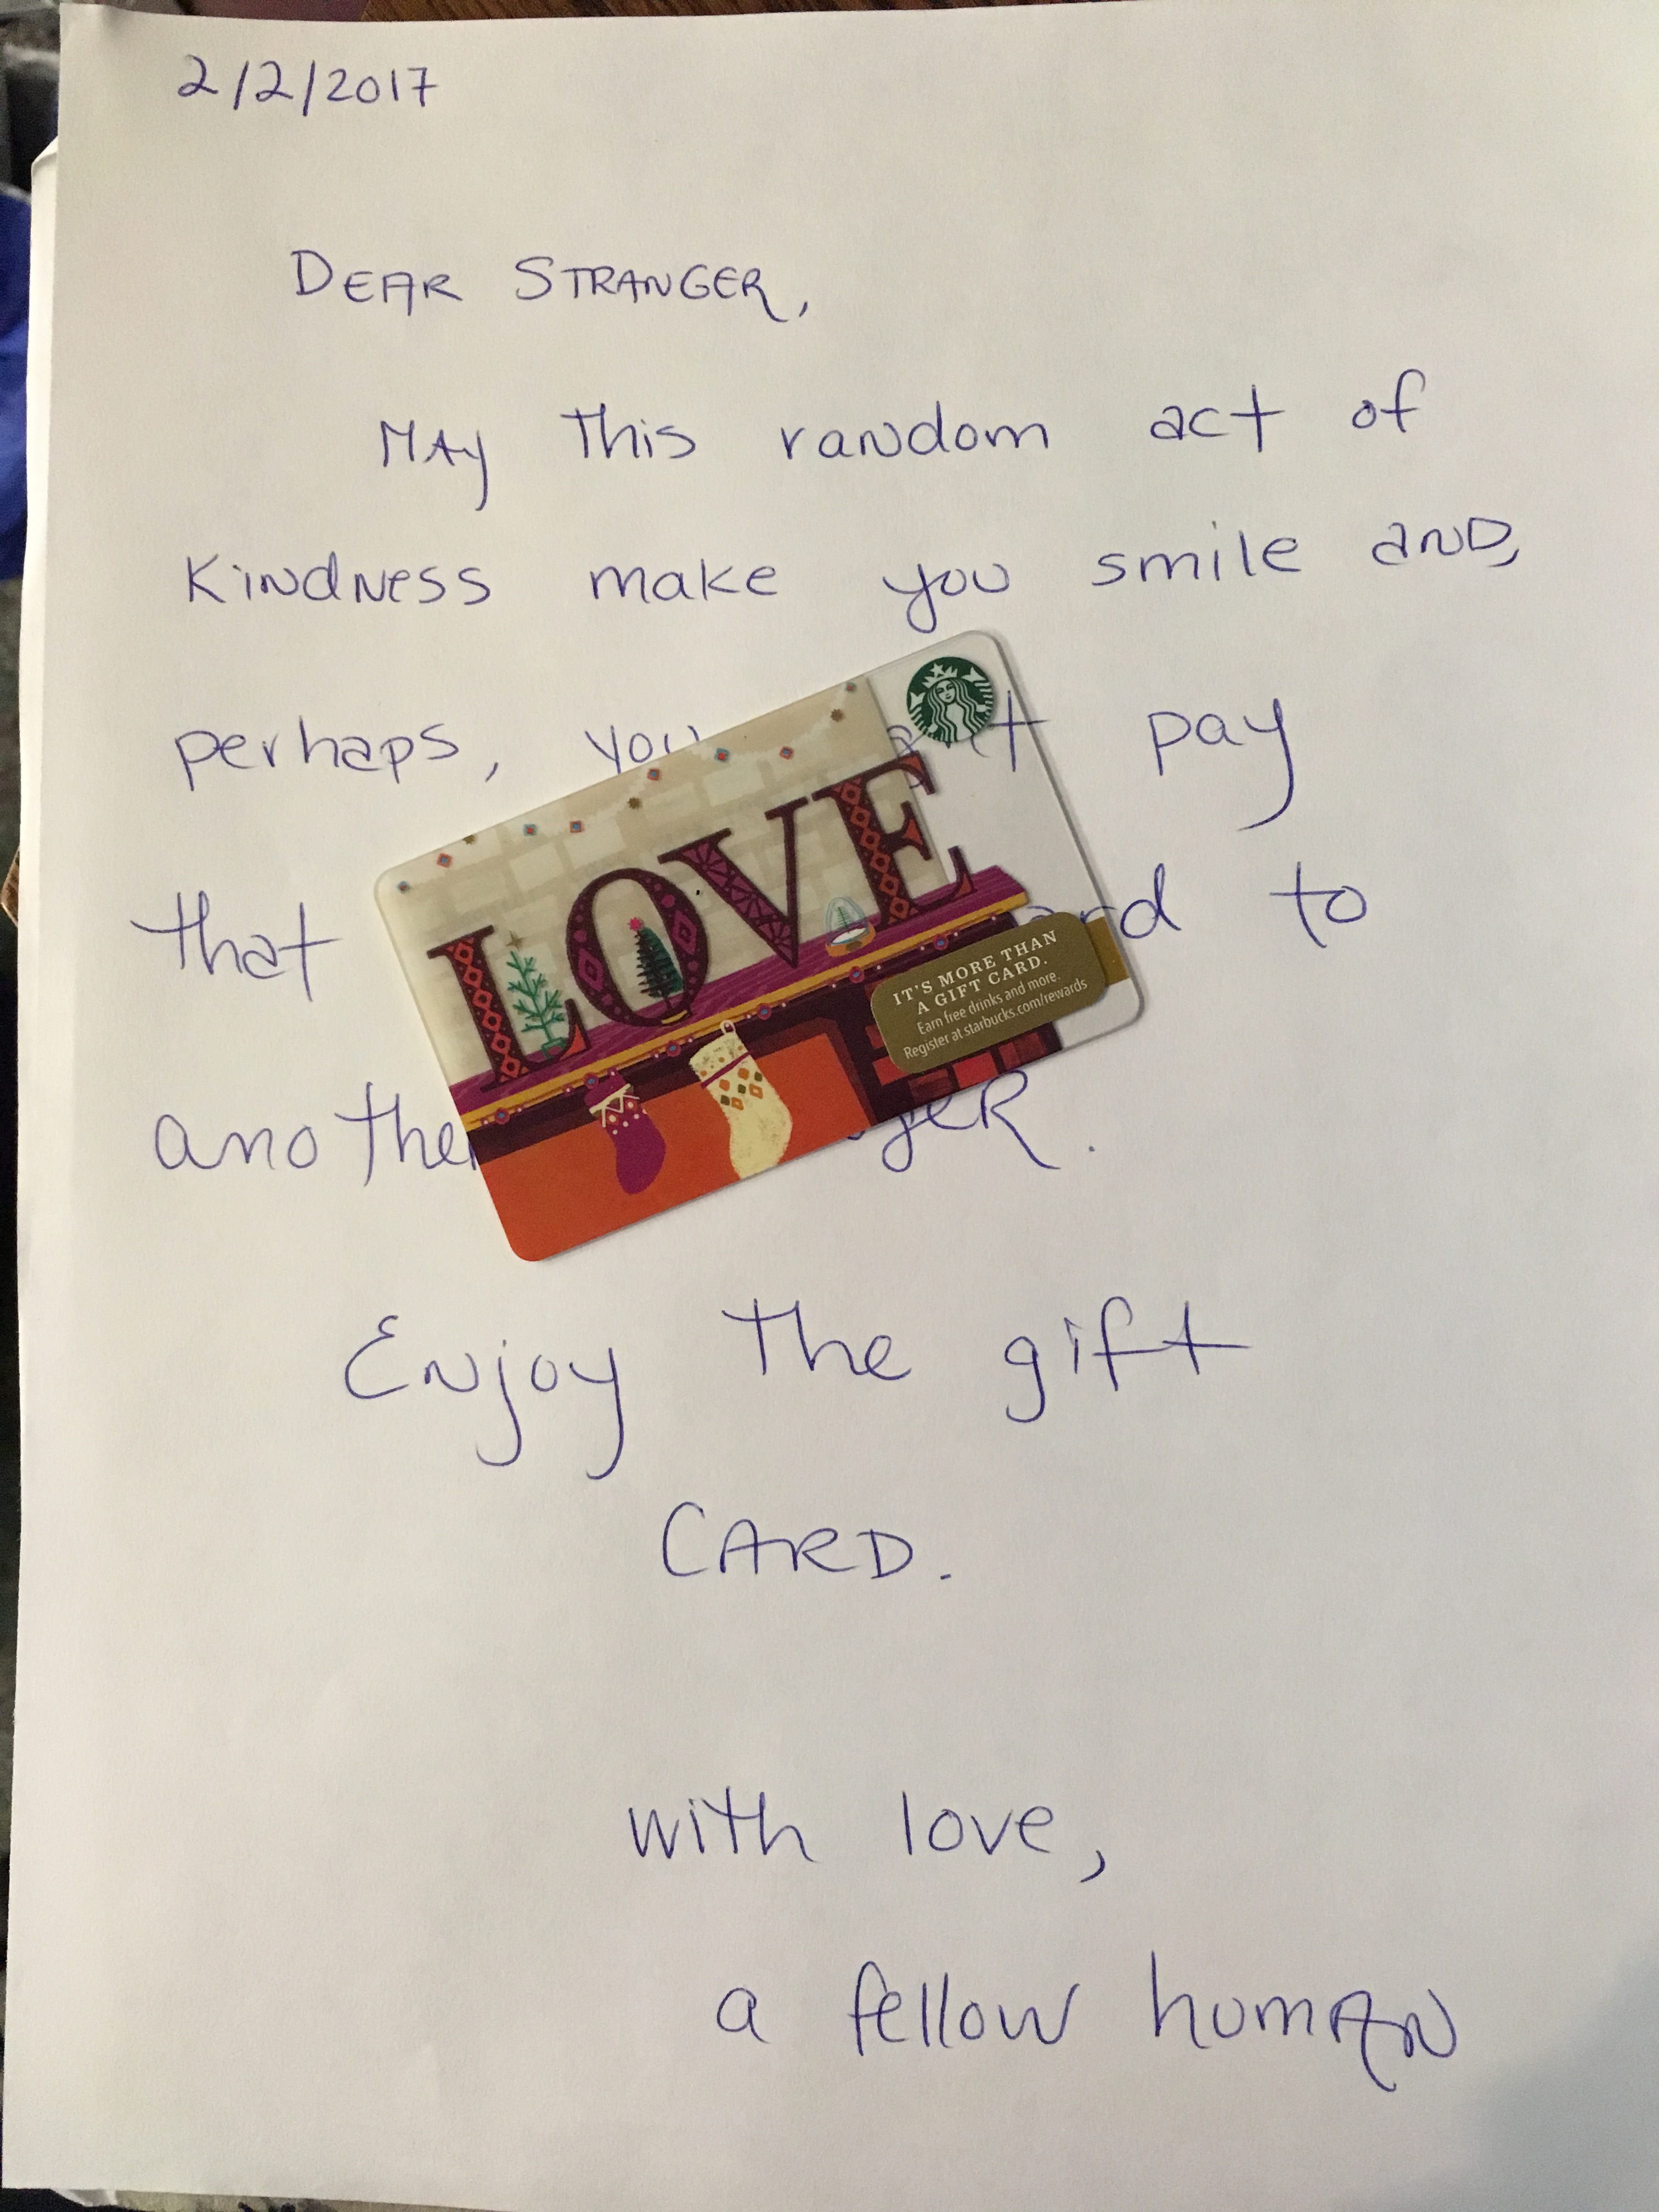 2/2/2017
DEAR STRANGER,
MAy this random act of
Kindness make you smile and,
perhaps, you pay
that to
another
Enjoy the gift
CARD.
with love,
a fellow human
LOVE
IT'S MORE THAN
A GIFT CARD.
Earn free drinks and more.
Register at starbucks.com/rewards